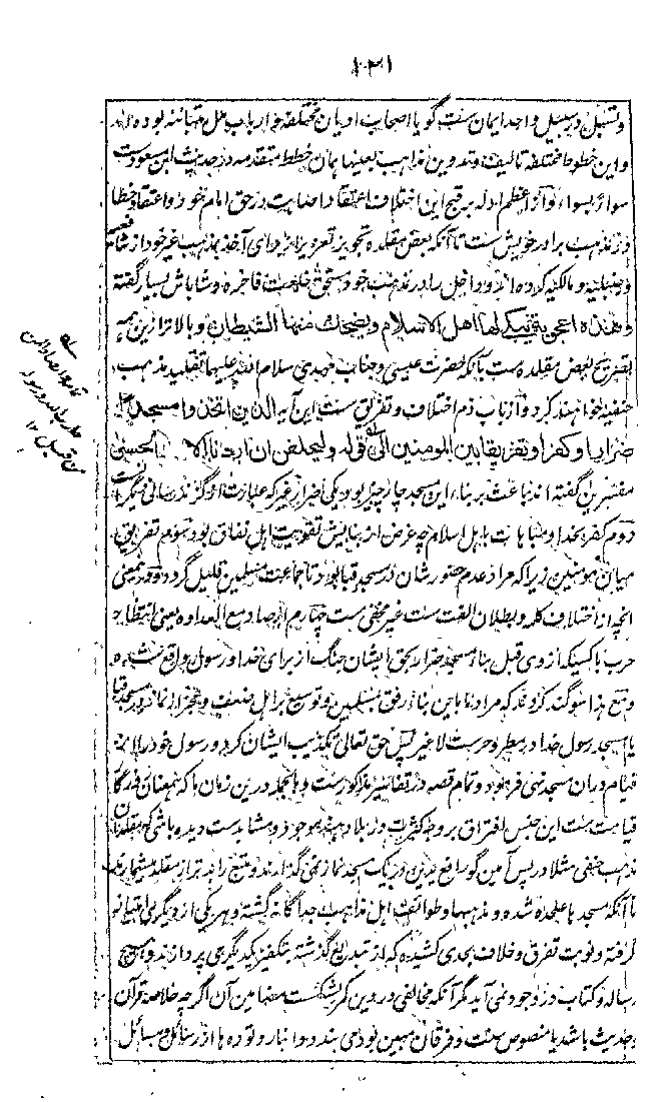 ۱۳۱
وتشتیل در سبیل واحد ایمان ست گویا اصحاب ادیان مختلفه و ارباب ملل متبائنه بوده اند
و این خطوط مختلفه تالیف و تدوین مذاهب بعینها همان خطط متقدمه در حدیث ابن مسعود ست
سواء بسواء و از اعظم ادله بر قبح این اختلاف اعتقاد اصابت در حق امام خود و اعتقاد خطا
در مذهب برادر خویش ست تا آنکه بعض مقلده تجویز تعزیر برای آخذ بمذهب غیر خود از شافعیه
و حنبلیه و مالکیه کرده اند و داخل را در مذهب خود مستحق خلعت فاخره و شاباش بسیار گفته
وهذه اعجوبة یبکی لها اهل الاسلام ویضحک منها الشیطان و بالاتر ازین همه
تصریح بعض مقلده ست بآنکه حضرت عیسی و جناب مهدی سلام الله علیهما تقلید مذهب
حنفیه خواهند کرد و از باب ذم اختلاف و تفریق ست این آیه الذین اتخذوا مسجدا
ضرارا وکفرا وتفریقا بین المومنین الی قوله ولیحلفن ان اردنا الا الحسنی
مفسرین گفته اند باعث بر بناء این مسجد چار چیز بود یکی ضرار غیر که عبارت از گزند رسانی دیگر است
دوم کفر بخدا و مباهات باهل اسلام چه غرض از بنایش تقویت اهل نفاق بود سوم تفریق
میان مومنین زیرا که مراد عدم حضور شان در مسجد قبا بود تا جماعت مسلمین قلیل گردد و در معنی
انچه از اختلاف کلمه و بطلان الفت ست غیر مخفی ست چهارم ارصاد مع العداوه یعنی انتظار
حرب با کسیکه از وی قبل بناء مسجد ضرار بحق ایشان جنگ از برای خدا و رسول واقع شده
و مع هذا سوگند کردند که مراد ما باین بنا رفق بمسلمین و توسیع بر اهل ضعف و عجز از نماز در مسجد قبا
یا مسجد رسول خدا در مطر و حر ست لا غیر پس حق تعالی تکذیب ایشان کرد و رسول خود را از
قیام دران مسجد نهی فرمود و تمام قصه در تفاسیر مذکور ست و بالجمله درین زمان ما که همعنان
قیامت ست این جنس افتراق بر وجه کثرت در بلاد هند موجود و مشاهد ست دیده باشی که مقلدان
مذهب حنفی مثلا در پس آمین گو رافع یدین در یک مسجد نماز نمی گذارند و متبع را بدتر از مقلد میشمارند
تا آنکه مسجد ها علحده شده و مذهبها و طوائف اهل مذاهب جداگانه گشته و هر یکی از دیگری امتیاز
گرفته و نوبت تفرق و خلاف بحدی کشیده که از تبدیع گذشته بتکفیر یکدیگر می پردازند و هیچ
رساله و کتاب در وجود نمی آید مگر آنکه مخالفی در وین کمر بشکست مضامین آن اگرچه خلاصه قرآن
و حدیث باشد یا منصوص سنت و فرقان مبین بود می بندد و انبار و توده ها از رسائل و مسائل